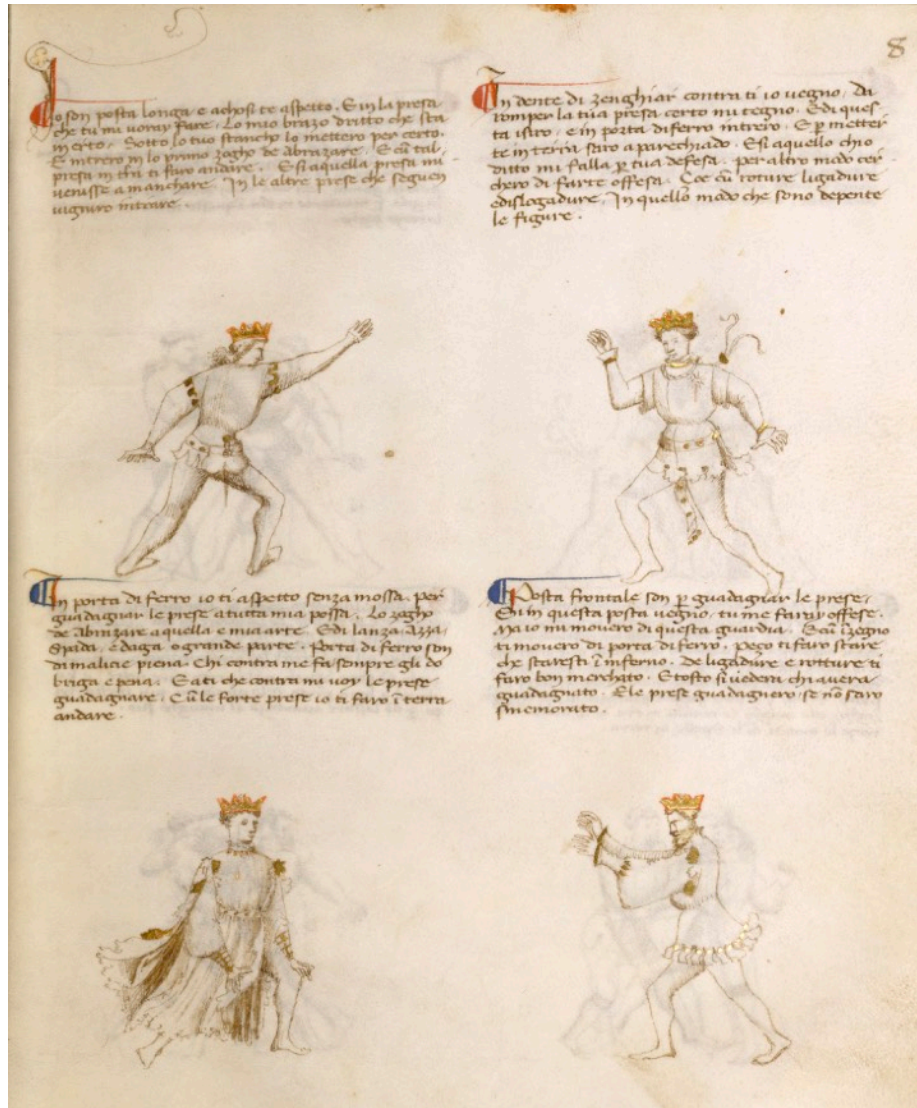 8
Io son posta longa e achosi te aspetto. E in la presa
che tu mi voray fare. Lo mio brazo dritto che sta
in erto. Sotto lo tuo stancho lo mettero per certo.
E intrero in lo primo zogho de abrazare. E cũ tal
presa in tr̃a ti faro andare. E si aquella presa mi
venisse a manchare. In le altre prese che seguen
vigniro intrare.
In dente di zenghiar contra ti io vegno. Di
romper la tua presa certo mi tegno. E di ques-
ta isiro, e in porta di ferro intrero. E p̱ metter
te in terra saro aparechiado. E si aquello ch'io
ditto mi falla p̱ tua defesa. per altro modo cer
chero di farte offesa. Çoe cũ roture ligadure
e dislogadure. In quello modo che sono depente
le figure.
In porta di ferro io ti aspetto senza mossa. per
guadagnar le prese a tutta mia possa. Lo zogho
de abrazare aquella e mia arte. E di lanza, Azza,
Spada, e daga o grande parte. Porta di ferro son
di malicie piena. Chi contra me fa sempre gli do
briga e pena. E a ti che contra mi voy le prese
guadagnare. Cũ le forte prese io ti faro ĩ terra
andare.
Posta frontale son p̱ guadagnar le prese.
Si in questa posta vegno, tu me faray offese.
Ma io mi movero di questa guardia. E cũ ĩzegno
ti movero di porta di ferro. Pezo ti faro stare
che staresti ĩ inferno. De ligadure e rotture ti
faro bon merchato. E tosto si vedera chi avera
guadagnato. E le prese guadagnero se nõ saro
smemorato.